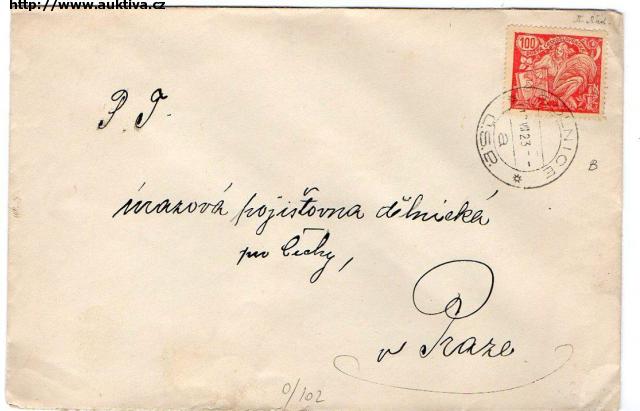 http://www.auktiva.cz
100
P. T.
úrazová pojišťovna dělnická
pro Čechy,
v Praze
VII 23
a
B
0/102